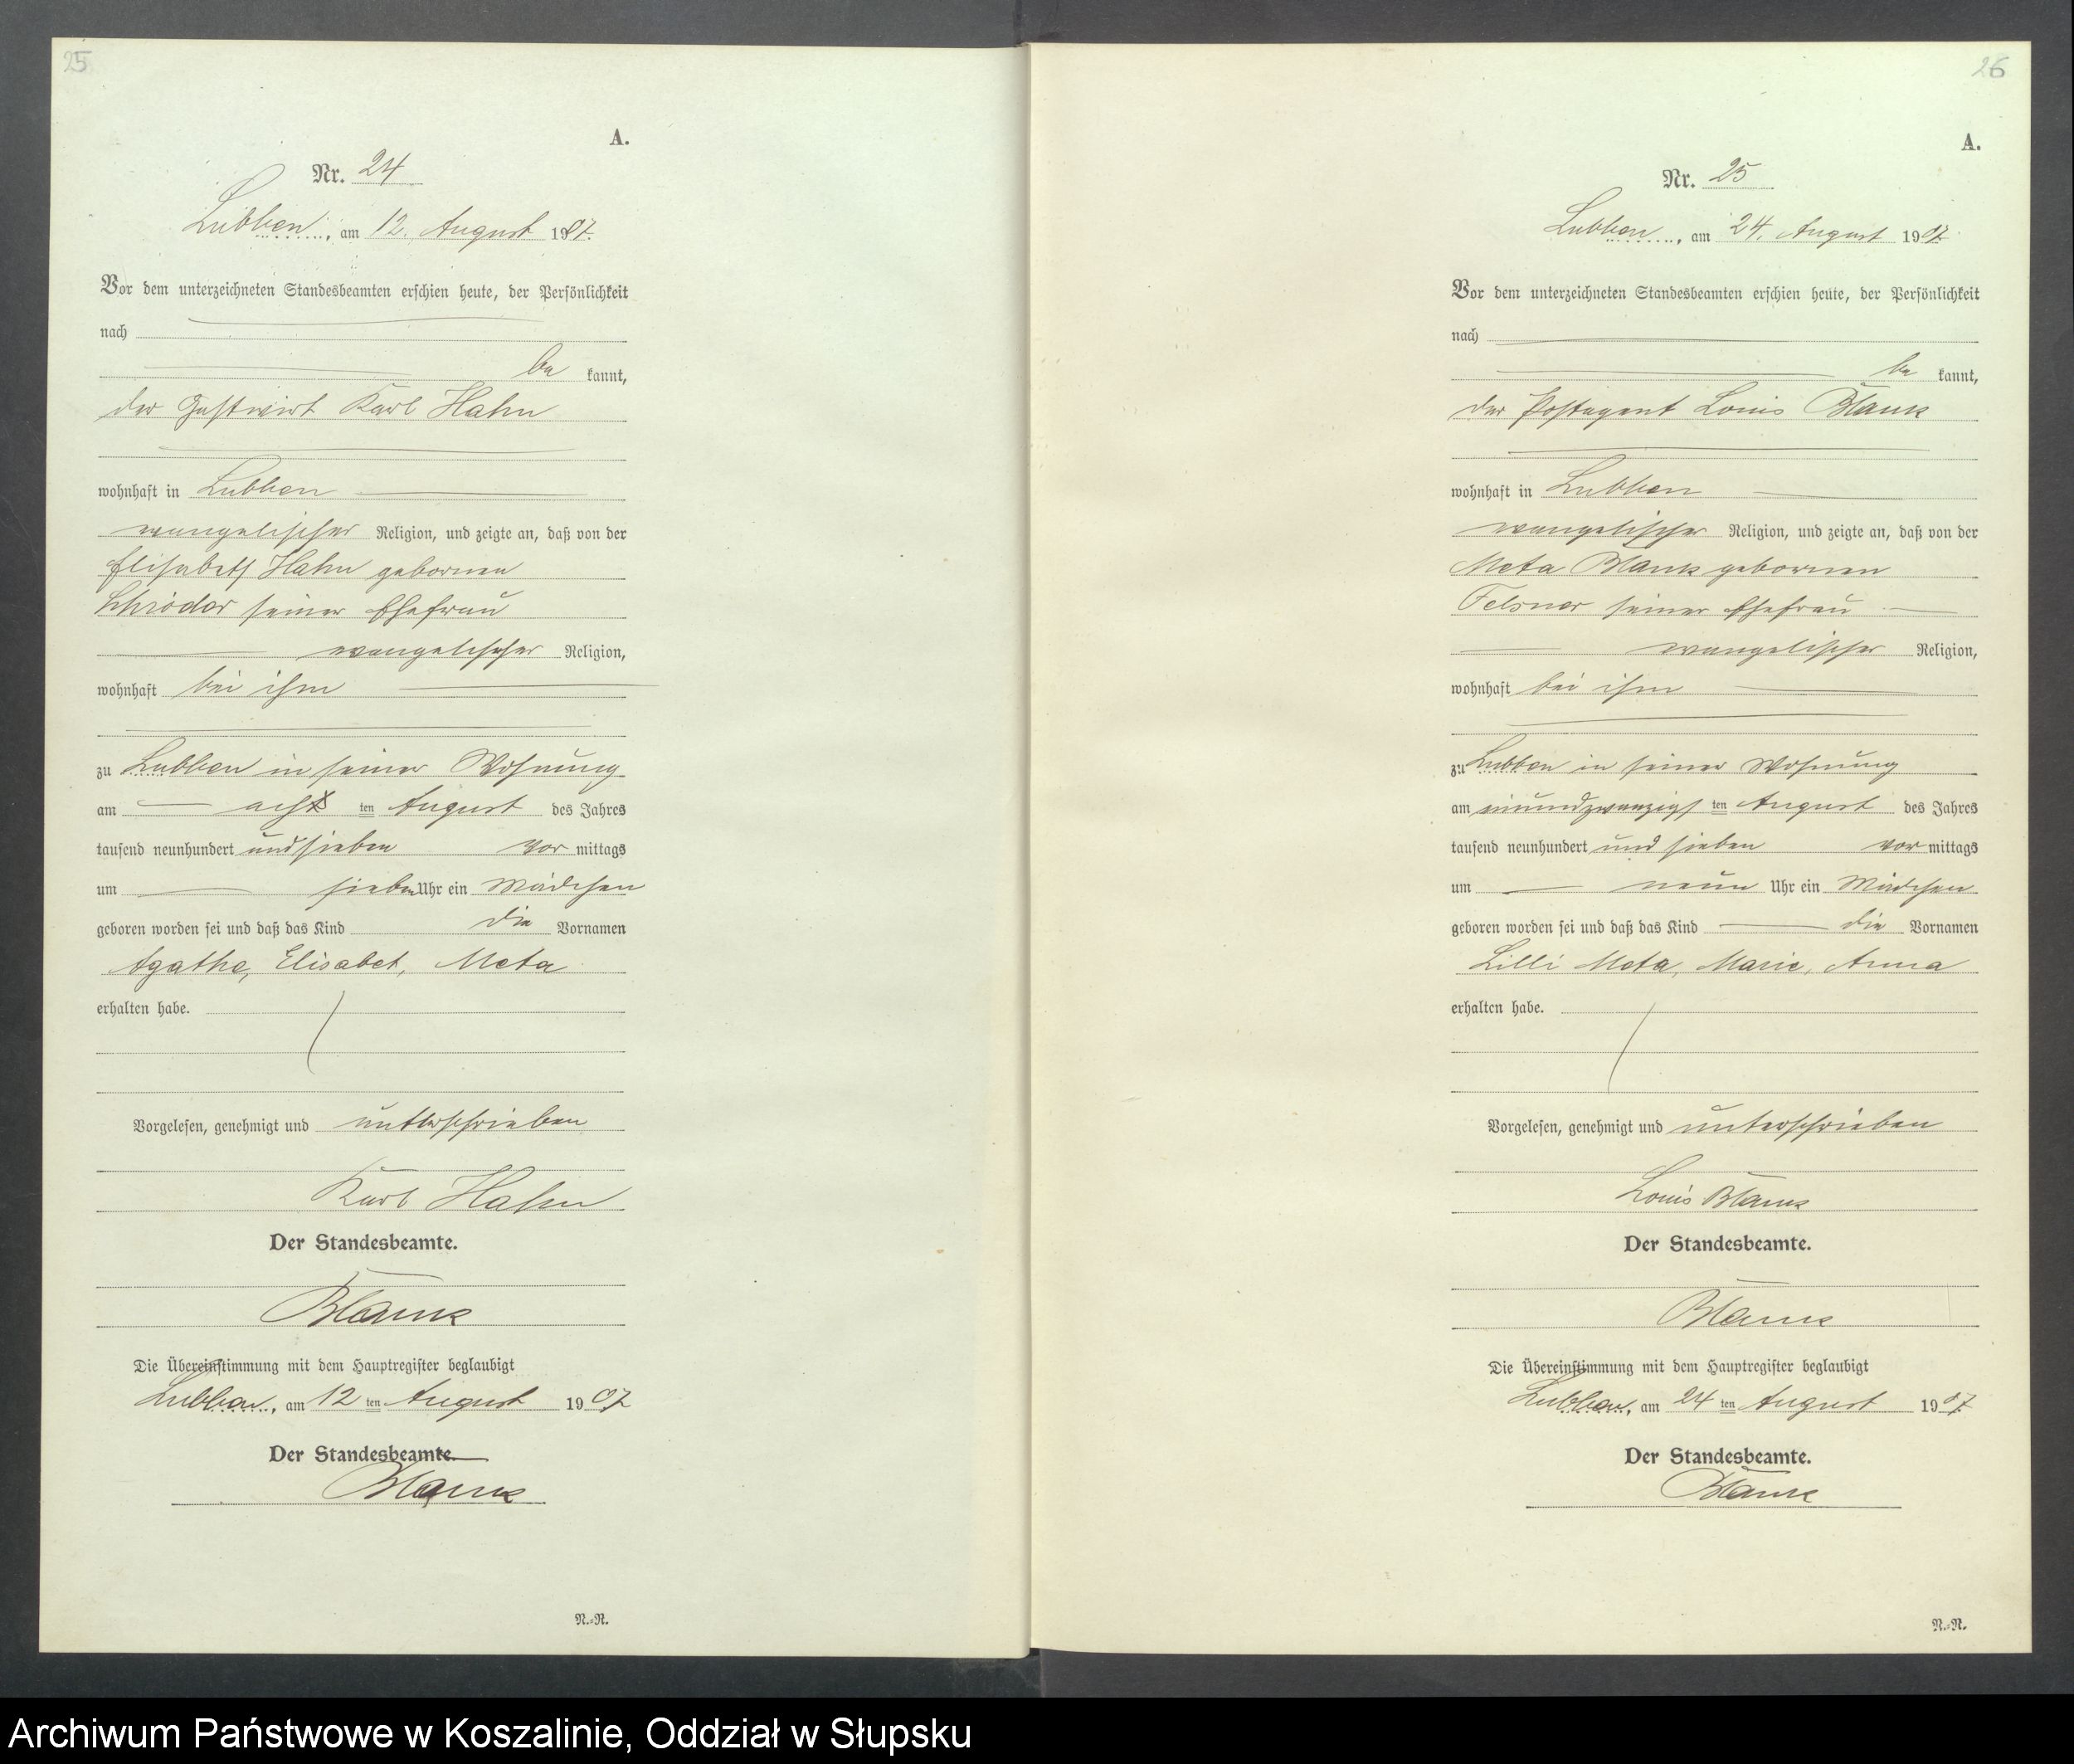 25
A.
Nr. 24
Lubben, am 12. August 1907.
Vor dem unterzeichneten Standesbeamten erschien heute, der Persönlichkeit
nach
be kannt,
der Gastwirt Karl Hahn
wohnhaft in Lubben
evangelischer Religion, und zeigte an, daß von der
Elisabeth Hahn gebornen
Schröder seiner Ehefrau
evangelischer Religion,
wohnhaft bei ihm
zu Lubben in seiner Wohnung
am acht ten August des Jahres
tausend neunhundert und sieben vor mittags
um sieben Uhr ein Mädchen
geboren worden sei und daß das Kind die Vornamen
Agathe, Elisabet, Meta
erhalten habe.
Vorgelesen, genehmigt und unterschrieben
Karl Hahn
Der Standesbeamte.
Blank
Die Übereinstimmung mit dem Hauptregister beglaubigt
Lubben, am 12 ten August 1907
Der Standesbeamte.
Blank
N.=R.
26
A.
Nr. 25
Lubben, am 24. August 1907.
Vor dem unterzeichneten Standesbeamten erschien heute, der Persönlichkeit
nach
be kannt,
der Postagent Louis Blank
wohnhaft in Lubben
evangelischer Religion, und zeigte an, daß von der
Meta Blank gebornen
Felsner seiner Ehefrau
evangelischer Religion,
wohnhaft bei ihm
zu Lubben in seiner Wohnung
am einundzwanzigs ten August des Jahres
tausend neunhundert und sieben vor mittags
um neun Uhr ein Mädchen
geboren worden sei und daß das Kind die Vornamen
Lilli Meta, Marie, Anna
erhalten habe.
Vorgelesen, genehmigt und unterschrieben
Louis Blank
Der Standesbeamte.
Blank
Die Übereinstimmung mit dem Hauptregister beglaubigt
Lubben, am 24 ten August 1907.
Der Standesbeamte.
Blank
N.=R.
Archiwum Państwowe w Koszalinie, Oddział w Słupsku